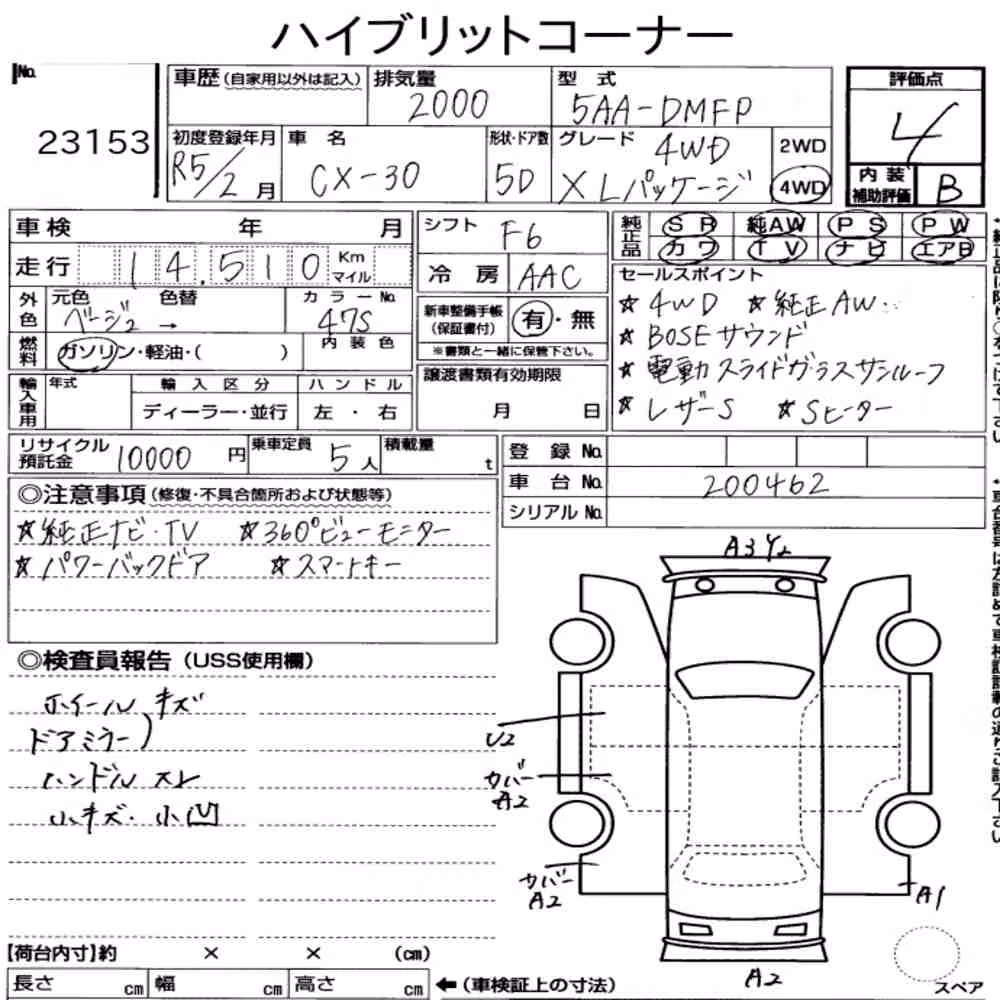 ハイブリットコーナー
No. 23153
車歴(自家用以外は記入) 排気量 2000 型式 5AA-DMFP
初度登録年月 R5/2月 車名 CX-30 形状・ドア数 5D グレード 4WD XLパッケージ 2WD 4WD
評価点 4
内装補助評価 B
車検 年 月
走行 14,510 Km マイル
シフト F6
冷房 AAC
純正品 SR 純AW PS PW
カワ TV ナビ エアB
外色 元色 ベージュ 色替 → カラーNo. 47S
燃料 ガソリン・軽油・( ) 内装色
新車整備手帳(保証書付) 有・無
※書類と一緒に保管下さい。
輸入車用 年式 輸入区分 ハンドル
ディーラー・並行 左・右
譲渡書類有効期限
月 日
セールスポイント
☆4WD ☆純正AW
☆BOSEサウンド
☆電動スライドガラスサンルーフ
☆レザーS ☆Sヒーター
リサイクル預託金 10000円 乗車定員 5人 積載量 t
登録No.
車台No. 200462
シリアルNo.
◎注意事項(修復・不具合箇所および状態等)
☆純正ナビ・TV ☆360°ビューモニター
☆パワーバックドア ☆スマートキー
◎検査員報告(USS使用欄)
ホイール キズ
ドアミラー
ハンドルスレ
小キズ・小凹
A3 Y2
U2
カバー
A2
カバー
A2
A1
A2
スペア
【荷台内寸】約 × × (cm)
長さ cm 幅 cm 高さ cm ←(車検証上の寸法)